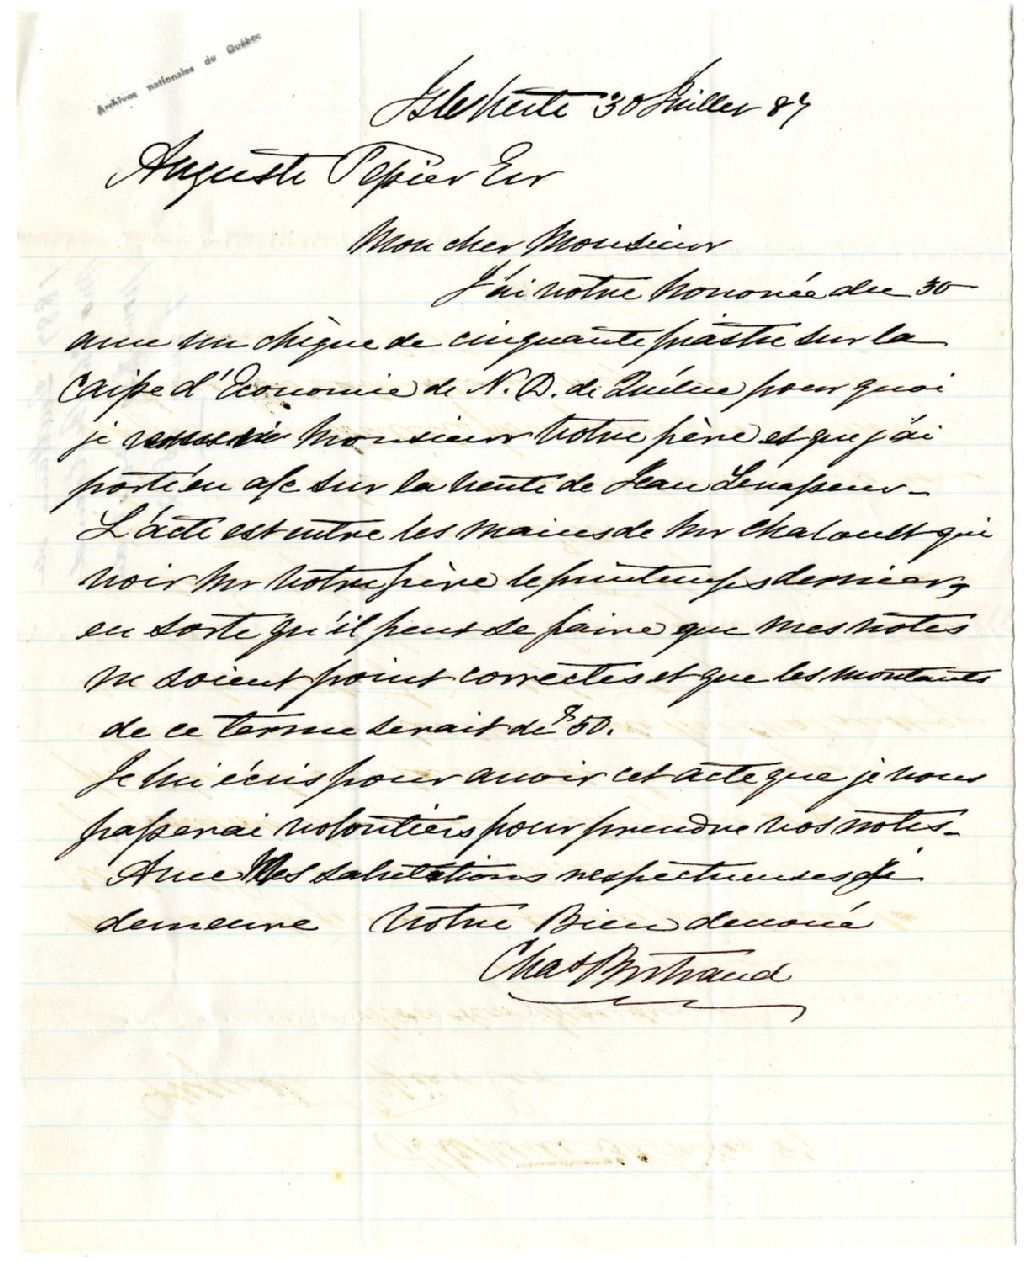 Archives nationales du Québec
Isle Verte 30 Juillet 87
Auguste Tessier Eur
Mon cher Monsieur
J'ai votre honorée du 30
avec un chèque de cinquante piastre sur la
Caisse d'Economie de N. D. de Québec pour quoi
je remercie Monsieur votre père et que j'ai
porté en a/c sur la vente de Jean Levasseur -
L'acte est entre les mains de Mr Chaloult qui
voir Mr votre père le printemps dernier,
en sorte qu'il peut se faire que mes notes
ne soient point correctes et que les montants
de ce terme serait de $50.
Je lui écris pour avoir cet acte que je vous
passerai volontiers pour prendre vos notes -
Avec Mes salutations respectueuses je
demeure Votre Bien devoué
Chas Bertrand